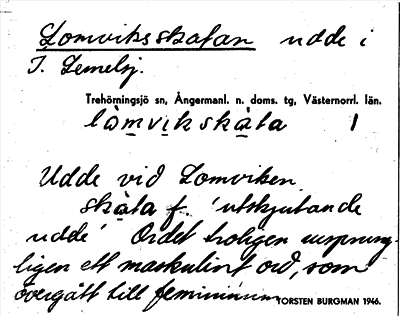 Lomviksskatan udde i
T. Lemelsj.
Trehörningsjö sn, Ångermanl. n. doms. tg, Västernorrl. län.
lòmvikskàta 1
Udde vid Lomviken.
skàta f. 'utskjutande
udde' Ordet troligen ursprung-
ligen ett maskulint ord, som
övergått till femininum
TORSTEN BURGMAN 1946.